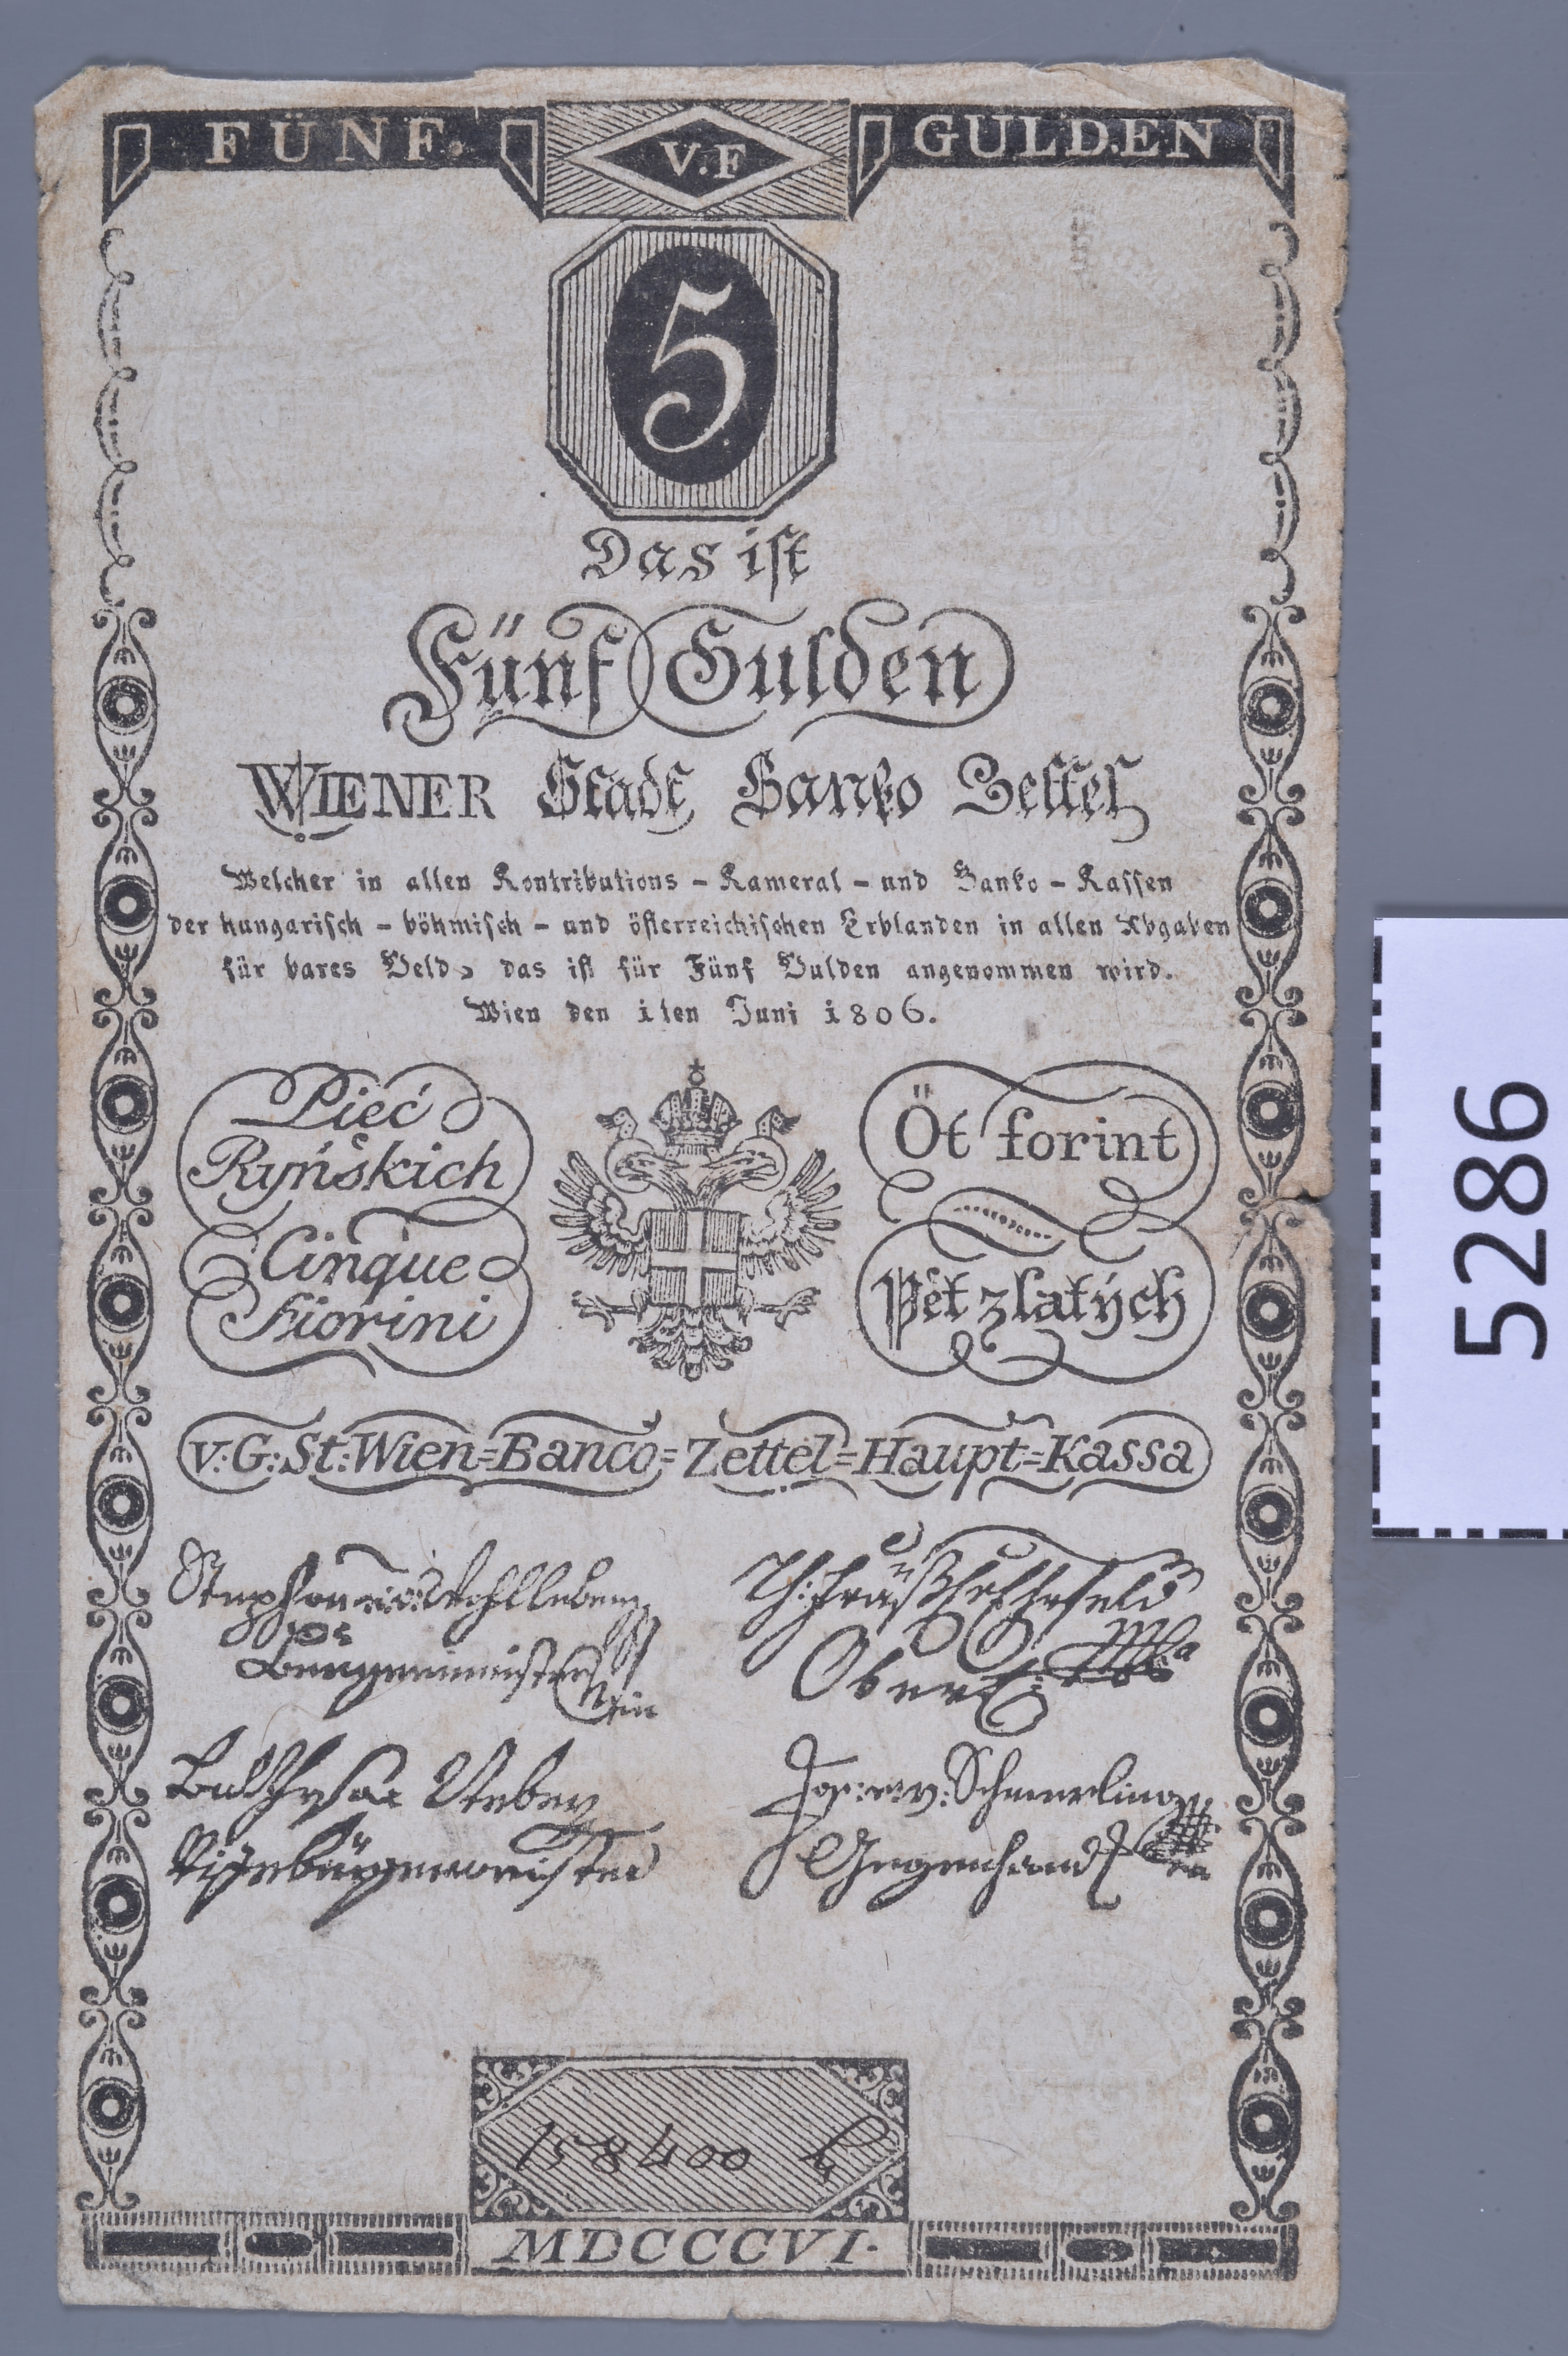 FÜNF.
V.F
GULDEN
5
Das ist
Fünf Gulden
WIENER Stadt Banko Zettel
Welcher in allen Kontributions - Kameral - und Banko - Kassen
der hungarisch - böhmisch - und österreichischen Erblanden in allen Abgaben
für bares Geld, das ist für Fünf Gulden angenommen wird.
Wien den 1ten Juni 1806.
Pieć
Ryńskich
Cinque
Fiorini
Öt forint
Pět zlatých
v:G:St:Wien=Banco=Zettel=Haupt=Kassa
Stephan v: Wohlleben
Burgermeister
Ober
Jos: v: Schmerling
Gegenhand
Vizebürgermeister
158400
MDCCCVI.
5286